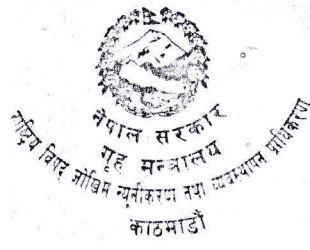 नेपाल सरकार
गृह मन्त्रालय
राष्ट्रिय विपद् जोखिम न्यूनीकरण तथा व्यवस्थापन प्राधिकरण
काठमाडौं